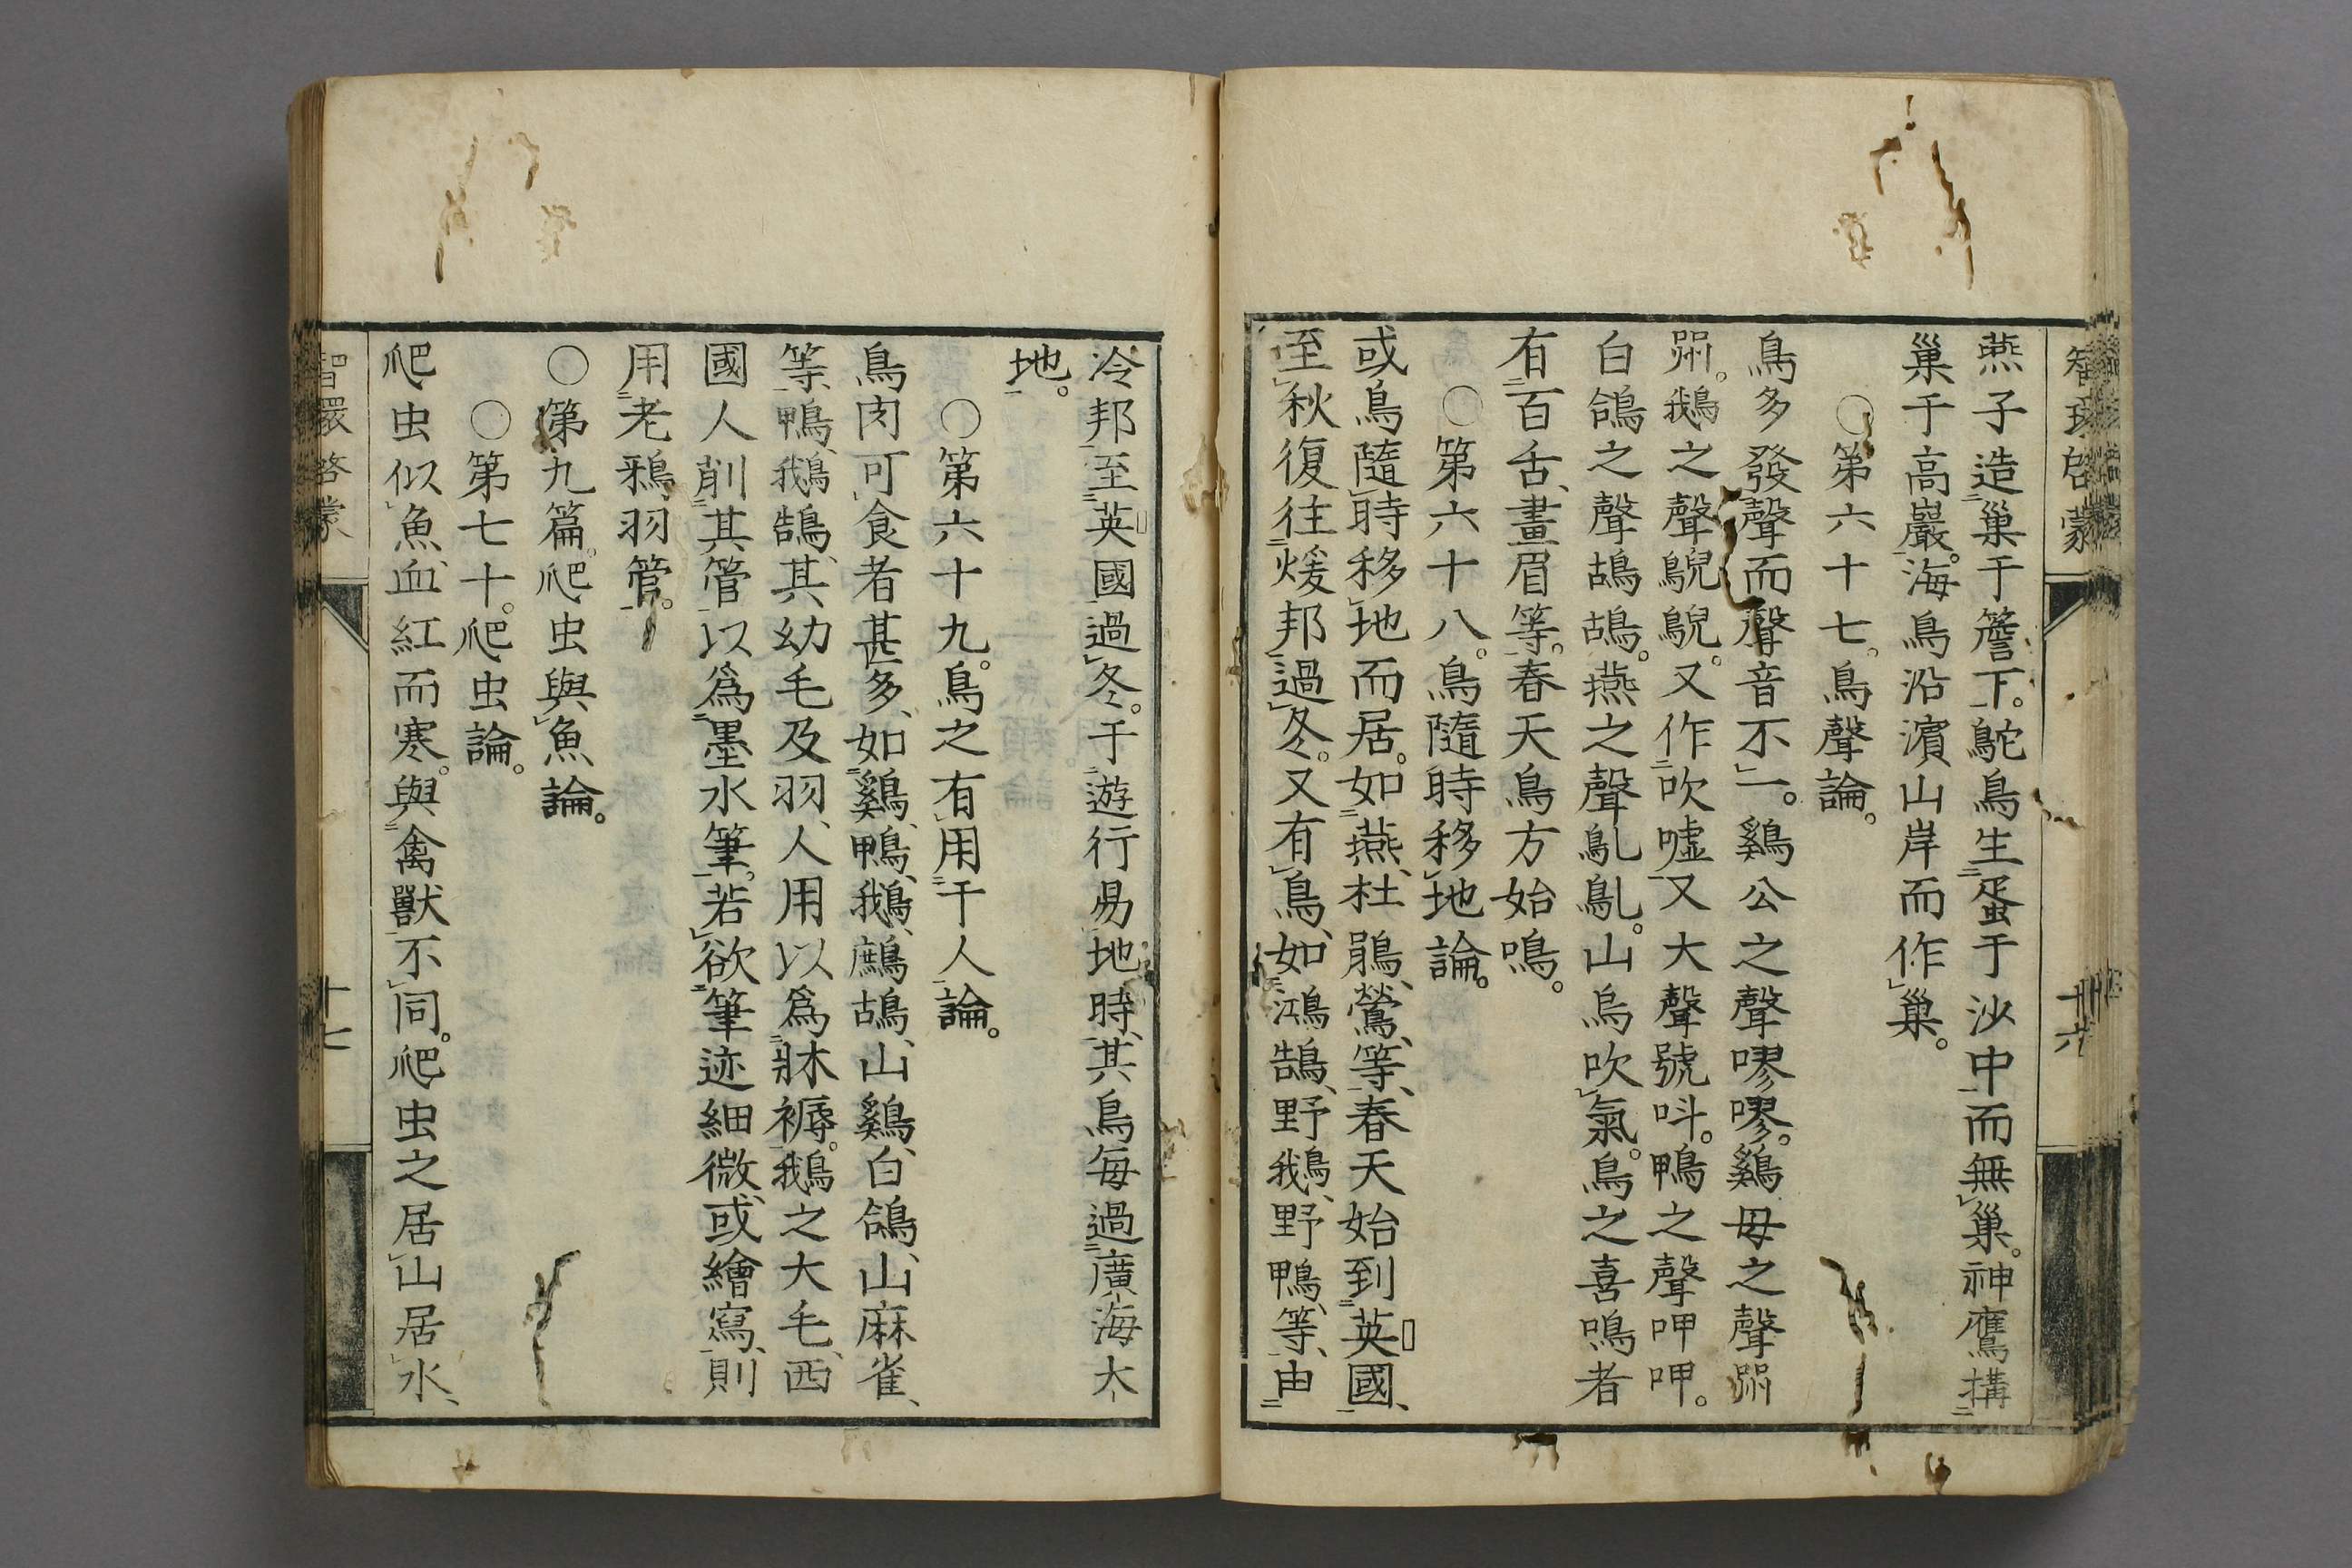 智環啓蒙
十六
燕子造巢于簷下。鴕鳥生蛋于沙中而無巢。神鷹搆
巢于高巖。海鳥沿濱山岸而作巢。
○第六十七。鳥聲論。
鳥多發聲而聲音不一。鷄公之聲嘐嘐。鷄母之聲
。鵝之聲鶃鶃。又作吹噓又大聲號呌。鴨之聲呷呷。
白鴿之聲鴣鴣。燕之聲鳦鳦。山烏吹氣。鳥之喜鳴者
有百舌、畫眉等。春天鳥方始鳴。
○第六十八。鳥隨時移地論。
或鳥隨時移地而居。如燕、杜鵑、鶯、等、春天始到英國、
至秋復往煖邦過冬。又有鳥、如鴻鵠、野鵝、野鴨、等、由
冷邦至英國過冬。于遊行易地時、其鳥每過廣海大
地。
○第六十九。鳥之有用于人論。
鳥肉可食者甚多、如鷄、鴨、鵝、鷓鴣、山鷄、白鴿、山麻雀、
等、鴨、鵝、鵠、其幼毛及羽、人用以爲牀褥。鵝之大毛、西
國人削其管以爲墨水筆。若欲筆迹細微、或繪寫、則
用老鴉羽管。
○第九篇。爬虫與魚論。
○第七十。爬虫論。
爬虫似魚、血紅而寒。與禽獸不同。爬虫之居山居水、
智環啓蒙
十七